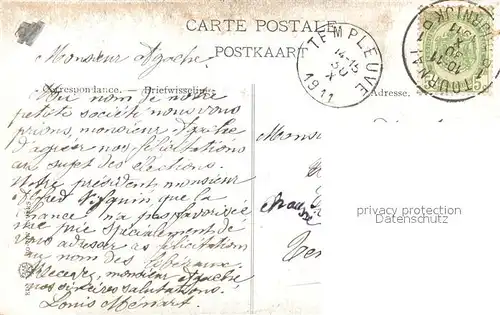 CARTE POSTALE
POSTKAART
TEMPLEUVE
14-15
30
X
1911
TOURNAI
DOORNIJK
10-11
1911
Monsieur Agache.
Correspondance. - Briefwisseling.
Adresse.
Au nom de notre
petite société nous vous
prions, monsieur Agache
d'agréer nos félicitations
au sujet des élections.
Notre président, monsieur
Alfred que la
chance n'a pas favorisée
me prie spécialement de
vous adresser ses félicitations
au nom des libéraux.
Recevez, monsieur Agache
nos sincères salutations.
Louis Ménart.
Monsieur
privacy protection
Datenschutz